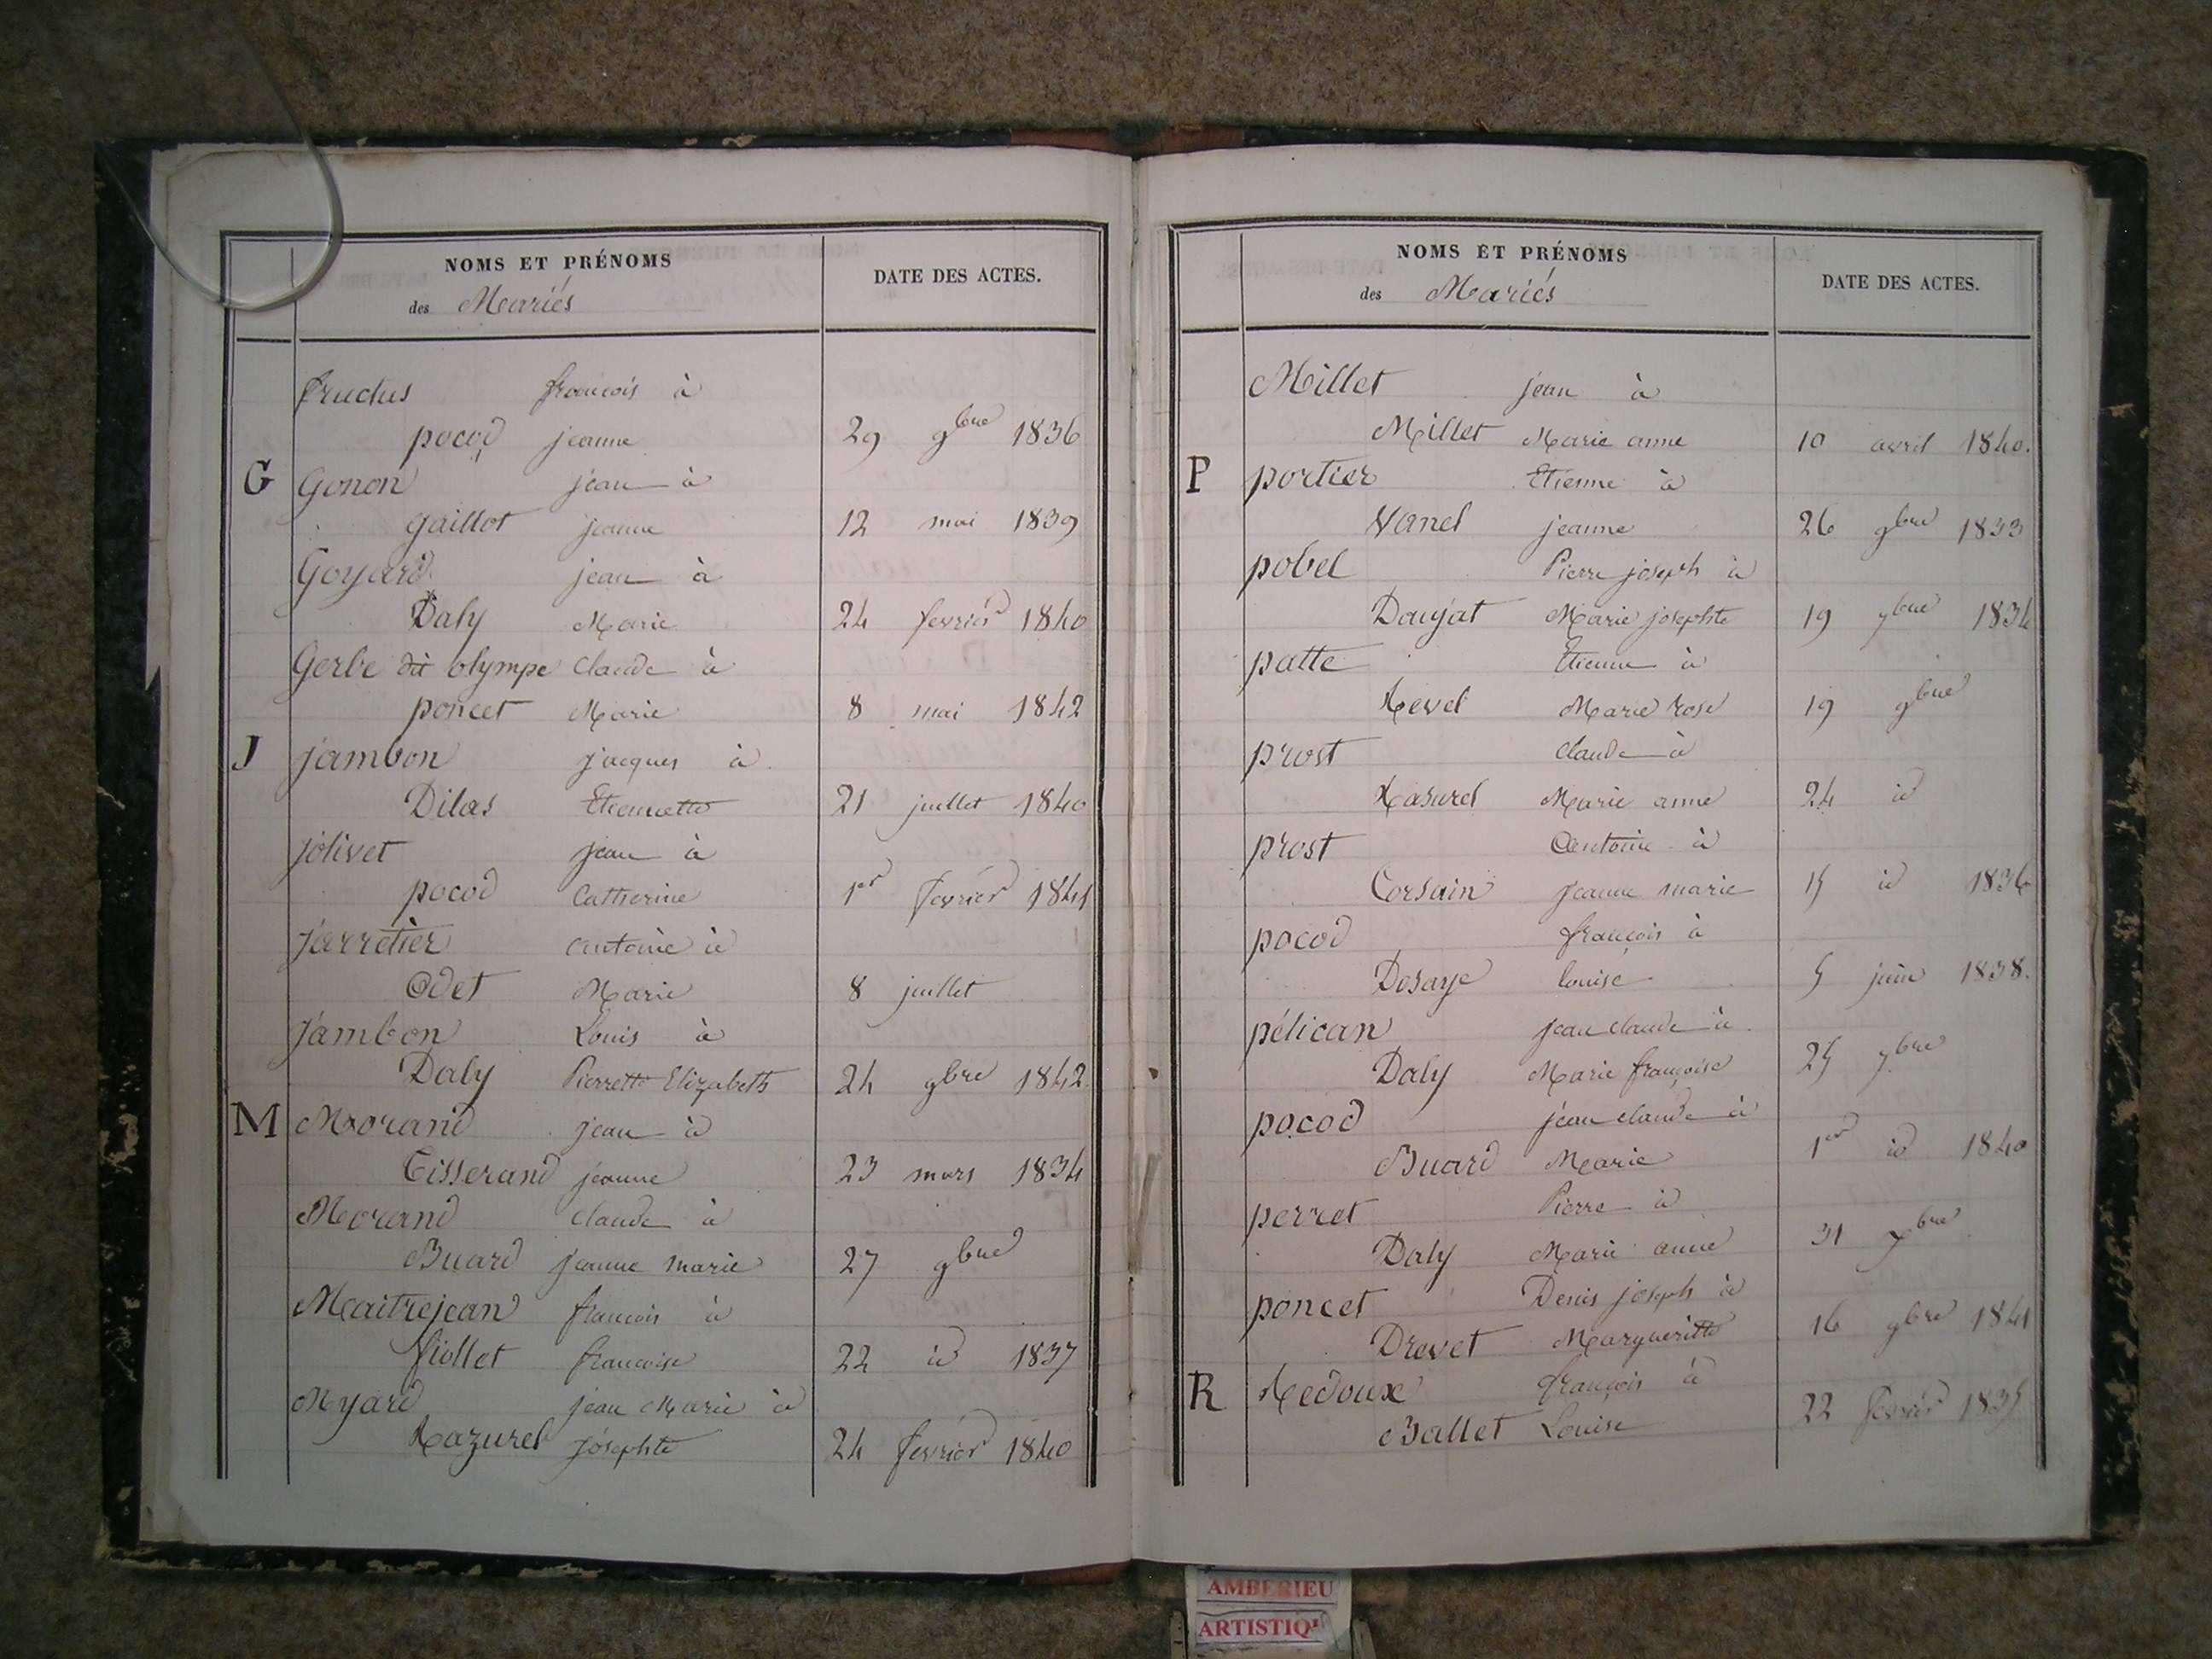 NOMS ET PRÉNOMS
des Mariés
DATE DES ACTES.
fructus françois à
pocod jeanne 29 9bre 1836
G Gonon jean à
gaillot jeanne 12 mai 1839
Goyard jean à
Daly Marie 24 fevrier 1840
Gerbe dit olympe Claude à
poncet Marie 8 mai 1842
J jambon jacques à
Dilas Etiennette 21 juillet 1840
jolivet jean à
pocod Catherine 1er fevrier 1841
jarretier antoine à
Odet Marie 8 juillet
jambon Louis à
Daly Pierrette Elizabeth 24 9bre 1842
M Morand jean à
Tisserand jeanne 23 mars 1834
Morand Claude à
Buard jeanne marie 27 9bre
Maitrejean françois à
fiollet francoise 22 id 1837
Myard jean Marie à
Razurel josephte 24 fevrier 1840
NOMS ET PRÉNOMS
des Mariés
DATE DES ACTES.
Millet jean à
Millet Marie anne 10 avril 1840.
P portier Etienne à
Vanel jeanne 26 9bre 1833
pobel Pierre joseph à
Daujat Marie josephte 19 7bre 1834
patte Etienne à
Revel Marie rose 19 9bre
prost Claude à
Rasurel Marie anne 24 id
prost Antoine à
Corsain jeanne marie 15 id 1836
pocod françois à
Desaye louise 5 juin 1838.
pélican jean claude à
Daly Marie françoise 25 7bre
pocod jean claude à
Buard Marie 1er id 1840
perret Pierre à
Daly Marie anne 31 bre
poncet Denis joseph à
Drevet Margueritte 16 9bre 1841
R Redoux françois à
Ballet Louise 22 fevrier 1835
AMBERIEU
ARTISTIQ